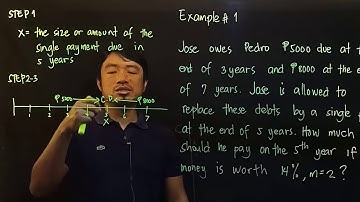 STEP 1
X = the size or amount of the
single payment due in
5 years
STEP 2-3
₱5000 C.D. ₱8000
1 2 3 5 6 7
X
Example # 1
Jose owes Pedro ₱5000 due at the
end of 3 years and ₱8000 at the end
of 7 years. Jose is allowed to
replace these debts by a single
at the end of 5 years. How much
should he pay on the 5th year if
money is worth 14%, m=2?